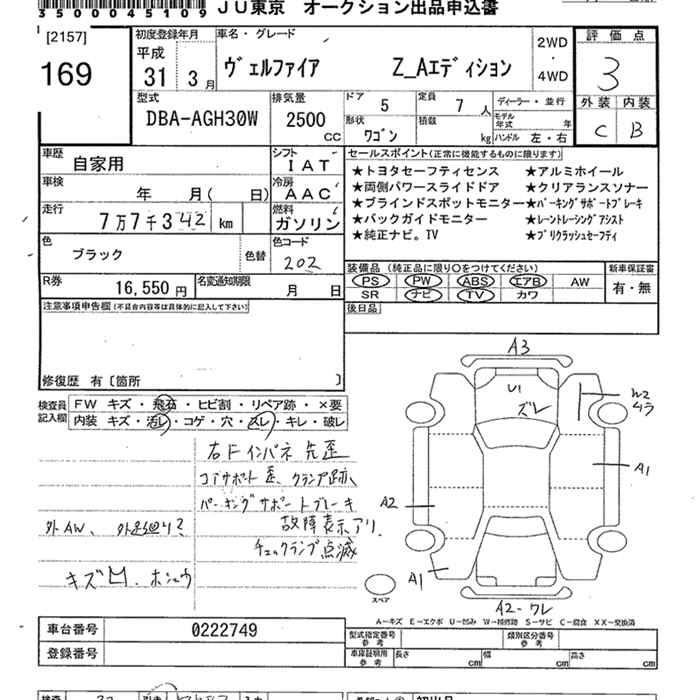 35000451​09 JU東京 オークション出品申込書
[2157]
169
初度登録年月
平成
31年 3月
車名・グレード
ヴェルファイア Z_Aエディション
2WD
・
4WD
評価点
3
外装 内装
C B
型式
DBA-AGH30W
排気量
2500
CC
ドア 5
定員 7人
形状 ワゴン
積載 kg
ディーラー・並行
モデル年式 年
ハンドル 左・右
車歴
自家用
シフト
IAT
車検
年 月( 日)
冷房
AAC
走行
7万7千342 km
燃料
ガソリン
色
ブラック
色替
色コード
202
R券
16,550円
名変通知期限
月 日
セールスポイント(正常に機能するものに限ります)
★トヨタセーフティセンス ★アルミホイール
★両側パワースライドドア ★クリアランスソナー
★ブラインドスポットモニター ★パーキングサポートブレーキ
★バックガイドモニター ★レーントレーシングアシスト
★純正ナビ。TV ★プリクラッシュセーフティ
装備品(純正品に限り○をつけてください)
PS PW ABS エアB AW
SR ナビ TV カワ
新車保証書
有・無
後日品
注意事項申告欄(不具合内容等は具体的に記入して下さい)
修復歴 有〔箇所 〕
検査員記入欄
FW キズ・飛石・ヒビ割・リペア跡・×要
内装 キズ・汚レ・コゲ・穴・スレ・キレ・破レ
右Fインパネ先歪
コアサポート歪、クランプ跡、
パーキングサポートブレーキ
故障表示アリ.
チェックランプ点滅
外AW、
キズ凹.ホシュウ
A3
U1
ズレ
W2
ムラ
A1
A2
A1
A2-ワレ
スペア
A-キズ E-エクボ U-凹み W-補修跡 S-サビ C-腐食 XX-交換済
車台番号 0222749
登録番号
型式指定番号 参考
類別区分番号 参考
車庫証明用 参考
長さ cm
幅 cm
高さ cm